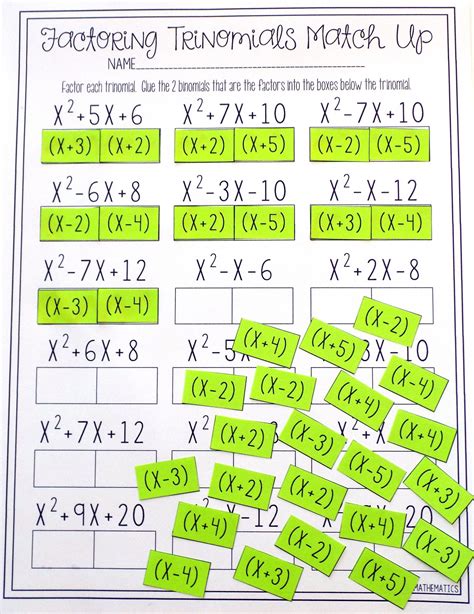 Factoring Trinomials Match Up
NAME
Factor each trinomial. Glue the 2 binomials that are the factors into the boxes below the trinomial.
X²+5X+6 X²+7X+10 X²-7X+10
(X+3) (X+2) (X+2) (X+5) (X-2) (X-5)
X²-6X+8 X²-3X-10 X²-X-12
(X-2) (X-4) (X+2) (X-5) (X+3) (X-4)
X²-7X+12 X²-X-6 X²+2X-8
(X-3) (X-4)
(X-2)
(X+4) (X+5)
X²+6X+8 X²-5X 3X-10
(X-2) (X-2) (X+4) (X-4)
X²+7X+12
(X+2) (X-3) (X+4)
(X-3) (X+2) (X+2) (X-5) (X+3)
X²+9X+20 X-12
(X+4) (X-2) (X+4) (X-3)
(X-4) (X+2) (X+5)
MATHEMATICS